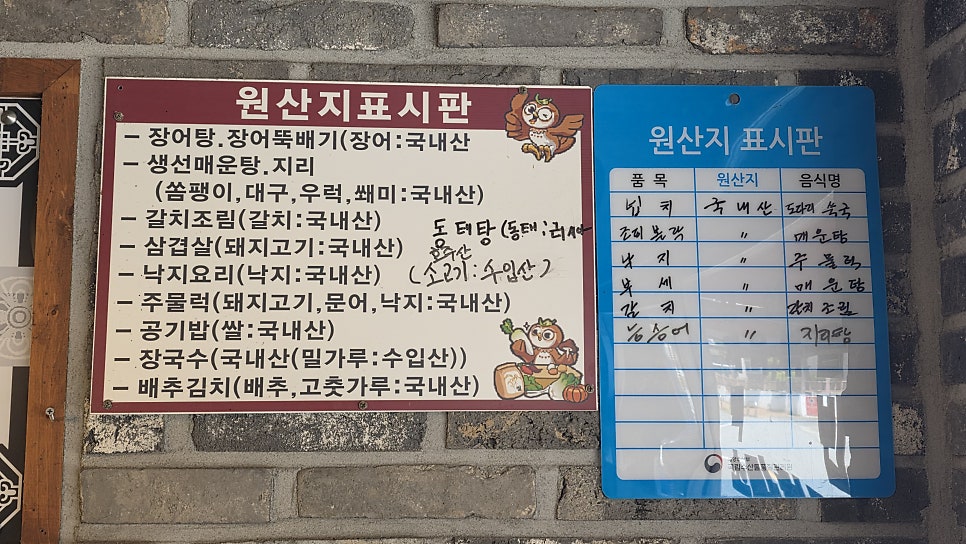 원산지표시판
– 장어탕.장어뚝배기(장어:국내산
– 생선매운탕.지리
(쏨팽이,대구,우럭,쐐미:국내산)
– 갈치조림(갈치:국내산)
동태탕(동태:러시아
– 삼겹살(돼지고기:국내산)
– 낙지요리(낙지:국내산)
(소고기:수입산)
– 주물럭(돼지고기,문어,낙지:국내산)
– 공기밥(쌀:국내산)
– 장국수(국내산(밀가루:수입산))
– 배추김치(배추,고춧가루:국내산)
원산지 표시판
품 목 원산지 음식명
넙 치 국 내 산 도다리 쑥국
조피볼락 〃 매운탕
낙 지 〃 주물럭
부 세 〃 매운탕
갈 치 〃 갈치조림
숭어 〃 지리탕
국립수산물품질관리원